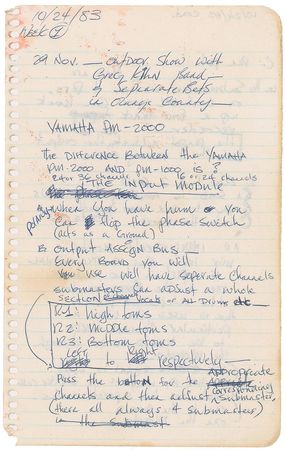 10/24/83
Week I
29 Nov. — outdoor show with
Greg Kihn Band —
2 Separate Sets
in Orange County —
YAMAHA PM-2000
The Difference Between the YAMAHA
PM-2000 AND PM-1000 is?
24 or 36 channels 16 or 24 channels
"THE INPUT MODULE
A: When you have hum you
can flop the phase switch
(acts as a Ground)
B: output Assign Bus —
Every Board you will
use will have seperate channels
submasters can adjust a whole
Section Vocals or All Drums etc —
R1: high toms
R2: Middle toms
R3: Bottom toms
Left to Right respectively —
Press the button for the Appropreate
corresponding
channels and then adjust submaster
(there all always 4 submasters)
in the Submast